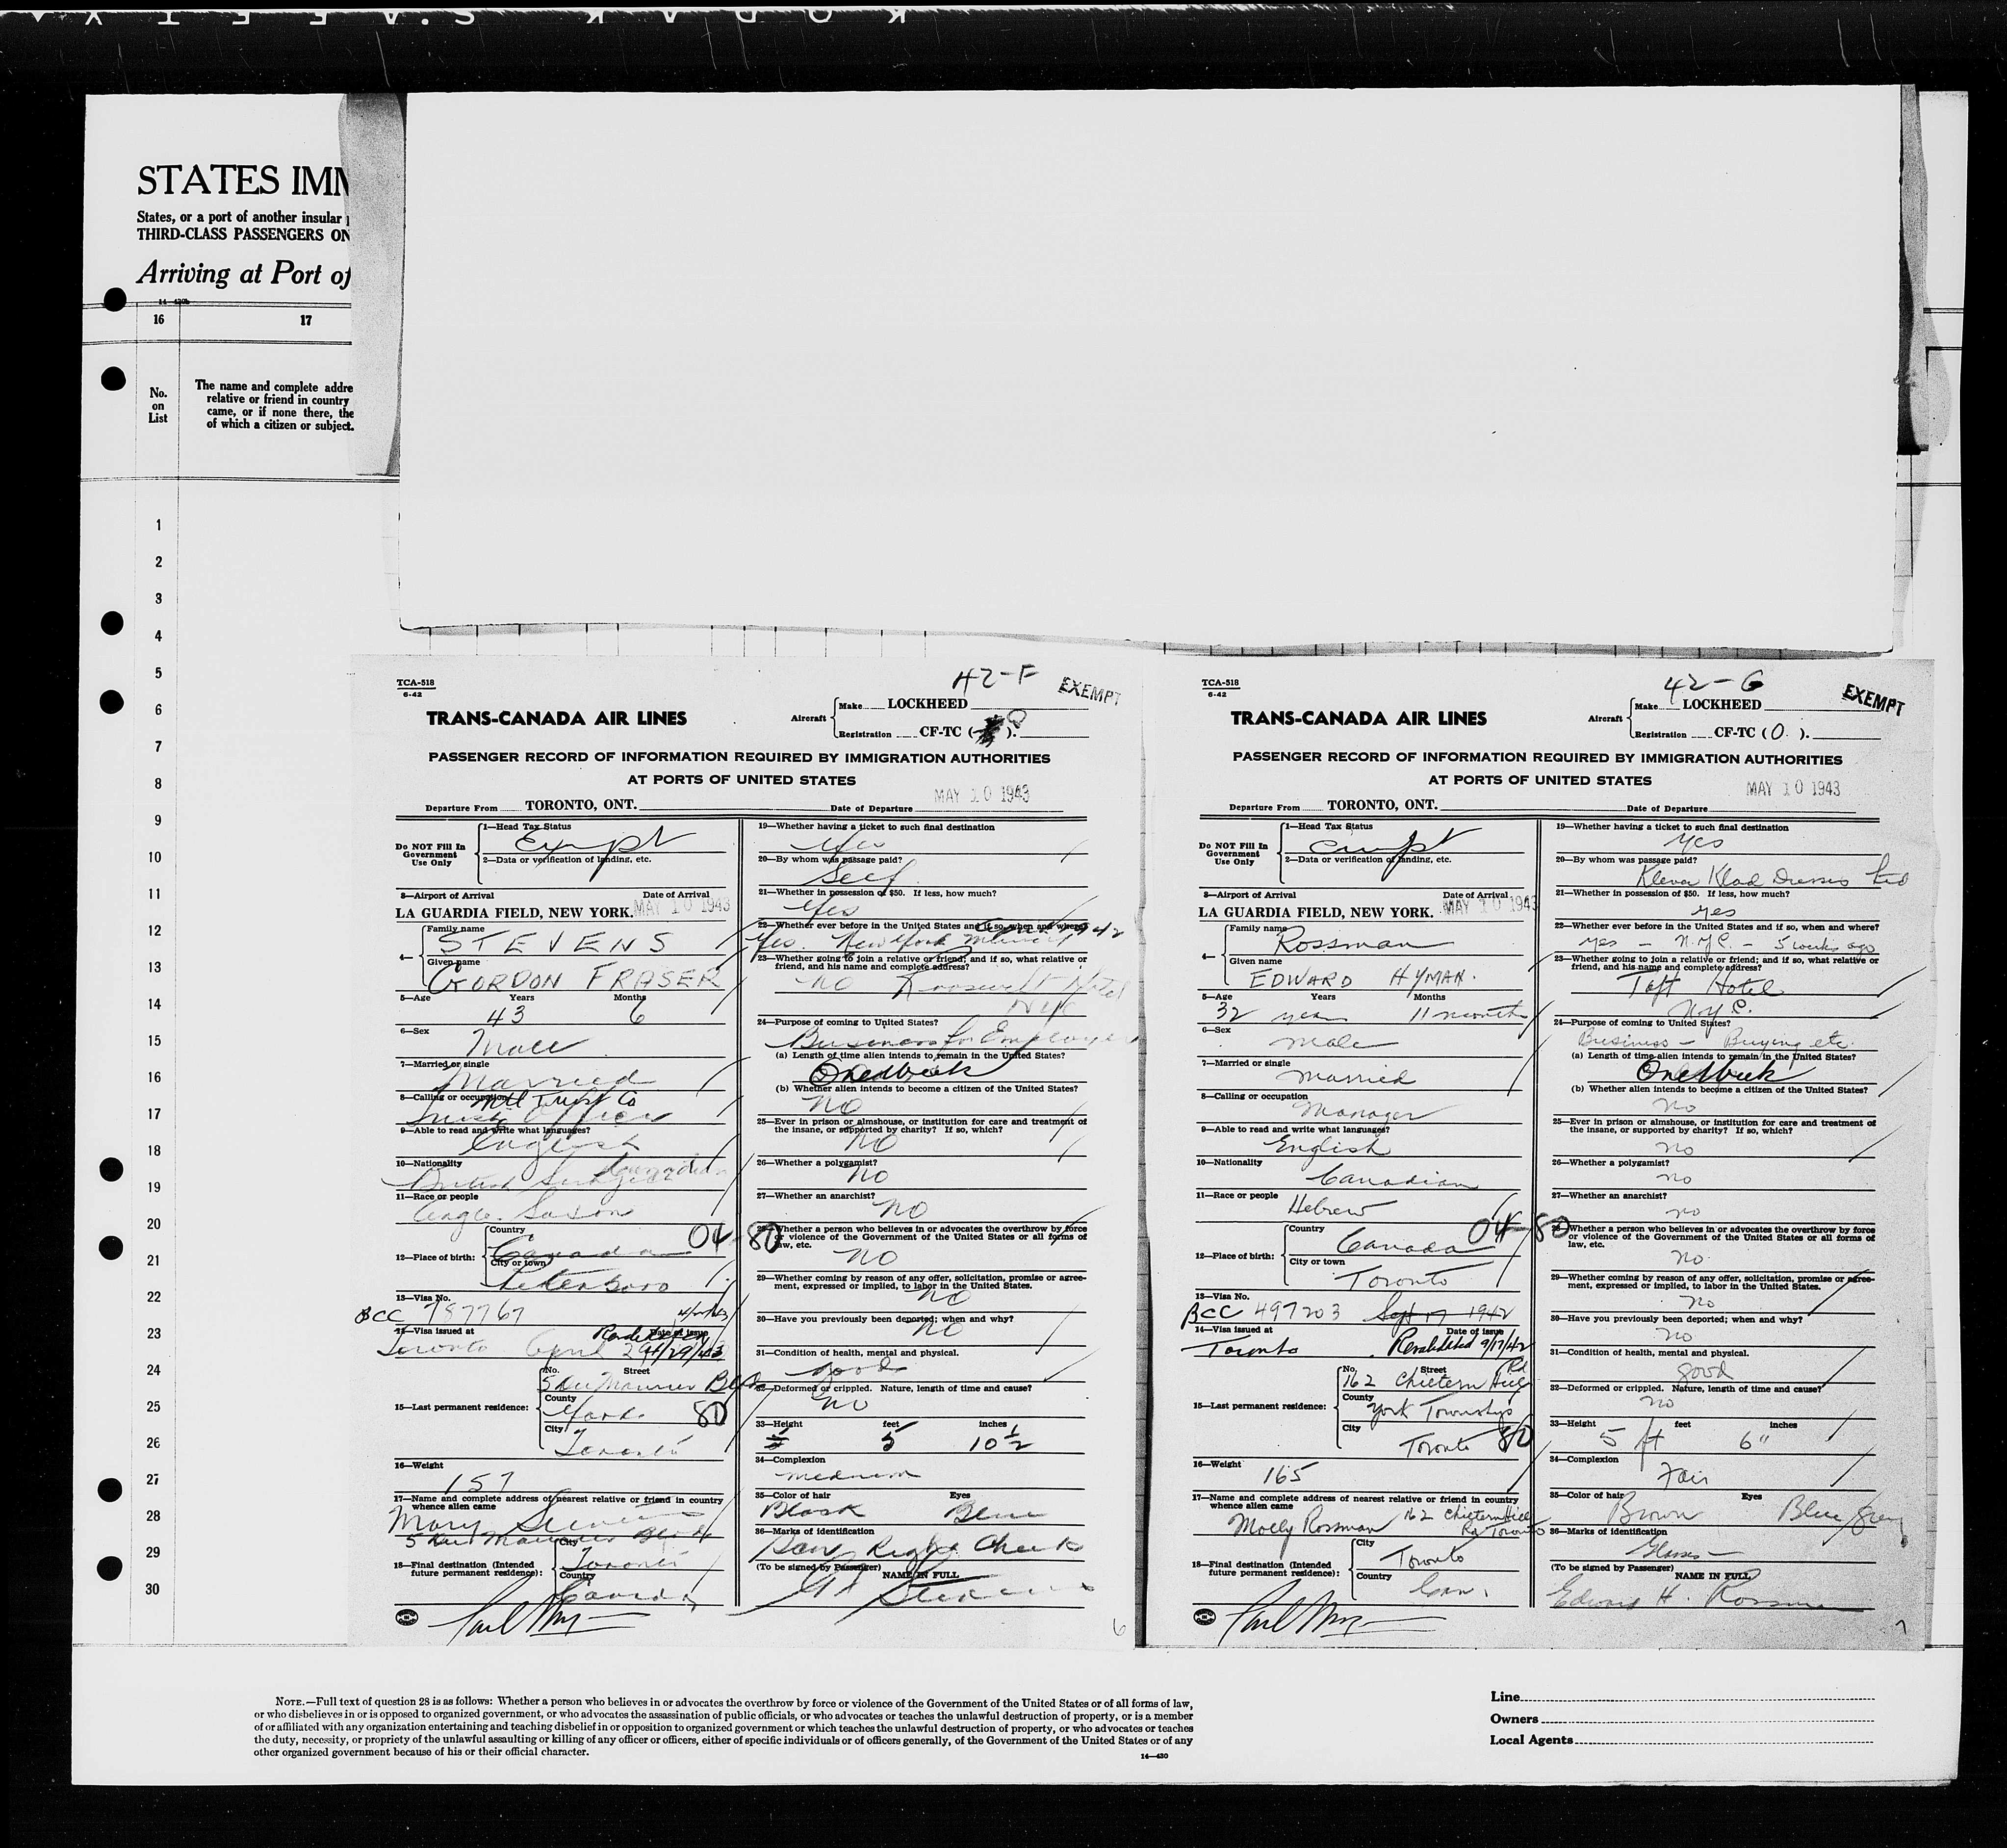 KODAK SAFETY
STATES IMM
States, or a port of another insular
THIRD-CLASS PASSENGERS ON
Arriving at Port of
16 17
No. on List
The name and complete addre
relative or friend in country
came, or if none there, the
of which a citizen or subject.
1
2
3
4
5
6
7
8
9
10
11
12
13
14
15
16
17
18
19
20
21
22
23
24
25
26
27
28
29
30
TCA-518
6-42
42-F
EXEMPT
TRANS-CANADA AIR LINES
Aircraft Make LOCKHEED
Registration CF-TC ( ).
PASSENGER RECORD OF INFORMATION REQUIRED BY IMMIGRATION AUTHORITIES
AT PORTS OF UNITED STATES
Departure From TORONTO, ONT. Date of Departure MAY 10 1943
Do NOT Fill In Government Use Only
1—Head Tax Status
Exempt
2—Data or verification of landing, etc.
3—Airport of Arrival Date of Arrival
LA GUARDIA FIELD, NEW YORK. MAY 10 1943
4— Family name
STEVENS
Given name
GORDON FRASER
5—Age Years Months
43 6
6—Sex
Male
7—Married or single
Married
8—Calling or occupation
Trust Co
Trust Officer
9—Able to read and write what languages?
English
10—Nationality
British Subject Canadian
11—Race or people
Anglo Saxon
12—Place of birth: Country
Canada 04-80
City or town
Peterboro
13—Visa No.
BCC 797767
14—Visa issued at Date of issue
Toronto April 29 4/29/43
15—Last permanent residence: No. Street
5 Du Maurier Blvd
County
York 80
City
Toronto
16—Weight
157
17—Name and complete address of nearest relative or friend in country
whence alien came
Mary Stevens
5 Du Maurier Blvd
18—Final destination (Intended
future permanent residence): City
Toronto
Country
Canada
19—Whether having a ticket to such final destination
Yes
20—By whom was passage paid?
Self
21—Whether in possession of $50. If less, how much?
Yes
22—Whether ever before in the United States and if so, when and where?
Yes. New York 1942
23—Whether going to join a relative or friend; and if so, what relative or
friend, and his name and complete address?
No Roosevelt Hotel
NYC
24—Purpose of coming to United States?
Business for Employer
(a) Length of time alien intends to remain in the United States?
One Week
(b) Whether alien intends to become a citizen of the United States?
No
25—Ever in prison or almshouse, or institution for care and treatment of
the insane, or supported by charity? If so, which?
No
26—Whether a polygamist?
No
27—Whether an anarchist?
No
28—Whether a person who believes in or advocates the overthrow by force
or violence of the Government of the United States or all forms of
law, etc.
No
29—Whether coming by reason of any offer, solicitation, promise or agree-
ment, expressed or implied, to labor in the United States.
No
30—Have you previously been deported; when and why?
No
31—Condition of health, mental and physical.
good
32—Deformed or crippled. Nature, length of time and cause?
No
33—Height feet inches
5 10 1/2
34—Complexion
medium
35—Color of hair Eyes
Black Blue
36—Marks of identification
Scar Right Cheek
(To be signed by Passenger) NAME IN FULL
6
TCA-518
6-42
42-G
EXEMPT
TRANS-CANADA AIR LINES
Aircraft Make LOCKHEED
Registration CF-TC (O ).
PASSENGER RECORD OF INFORMATION REQUIRED BY IMMIGRATION AUTHORITIES
AT PORTS OF UNITED STATES
Departure From TORONTO, ONT. Date of Departure MAY 10 1943
Do NOT Fill In Government Use Only
1—Head Tax Status
Exempt
2—Data or verification of landing, etc.
3—Airport of Arrival Date of Arrival
LA GUARDIA FIELD, NEW YORK. MAY 10 1943
4— Family name
Rossman
Given name
EDWARD HYMAN.
5—Age Years Months
32 years 11 months
6—Sex
male
7—Married or single
married
8—Calling or occupation
Manager
9—Able to read and write what languages?
English
10—Nationality
Canadian
11—Race or people
Hebrew
12—Place of birth: Country
Canada 04-80
City or town
Toronto
13—Visa No.
BCC 497203 Sept 17 1942
14—Visa issued at Date of issue
Toronto Revalidated 9/17/42
15—Last permanent residence: No. Street
162 Chiltern Hill Rd
County
York Township
City
Toronto 80
16—Weight
165
17—Name and complete address of nearest relative or friend in country
whence alien came
Molly Rossman 162 Chiltern Hill
Rd Toronto
18—Final destination (Intended
future permanent residence): City
Toronto
Country
Can.
19—Whether having a ticket to such final destination
yes
20—By whom was passage paid?
Kleva Klad Dresses Ltd
21—Whether in possession of $50. If less, how much?
yes
22—Whether ever before in the United States and if so, when and where?
yes - N.Y.C. - 5 weeks ago
23—Whether going to join a relative or friend; and if so, what relative or
friend, and his name and complete address?
Taft Hotel
N.Y.C.
24—Purpose of coming to United States?
Business - Buying etc.
(a) Length of time alien intends to remain in the United States?
One Week
(b) Whether alien intends to become a citizen of the United States?
no
25—Ever in prison or almshouse, or institution for care and treatment of
the insane, or supported by charity? If so, which?
no
26—Whether a polygamist?
no
27—Whether an anarchist?
no
28—Whether a person who believes in or advocates the overthrow by force
or violence of the Government of the United States or all forms of
law, etc.
no
29—Whether coming by reason of any offer, solicitation, promise or agree-
ment, expressed or implied, to labor in the United States.
no
30—Have you previously been deported; when and why?
no
31—Condition of health, mental and physical.
good
32—Deformed or crippled. Nature, length of time and cause?
no
33—Height feet inches
5 ft 6"
34—Complexion
Fair
35—Color of hair Eyes
Brown Blue/Grey
36—Marks of identification
Glasses
(To be signed by Passenger) NAME IN FULL
Edward H. Rossman
7
NOTE.—Full text of question 28 is as follows: Whether a person who believes in or advocates the overthrow by force or violence of the Government of the United States or of all forms of law,
or who disbelieves in or is opposed to organized government, or who advocates the assassination of public officials, or who advocates or teaches the unlawful destruction of property, or is a member
of or affiliated with any organization entertaining and teaching disbelief in or opposition to organized government or which teaches the unlawful destruction of property, or who advocates or teaches
the duty, necessity, or propriety of the unlawful assaulting or killing of any officer or officers, either of specific individuals or of officers generally, of the Government of the United States or of any
other organized government because of his or their official character.
14—430
Line
Owners
Local Agents